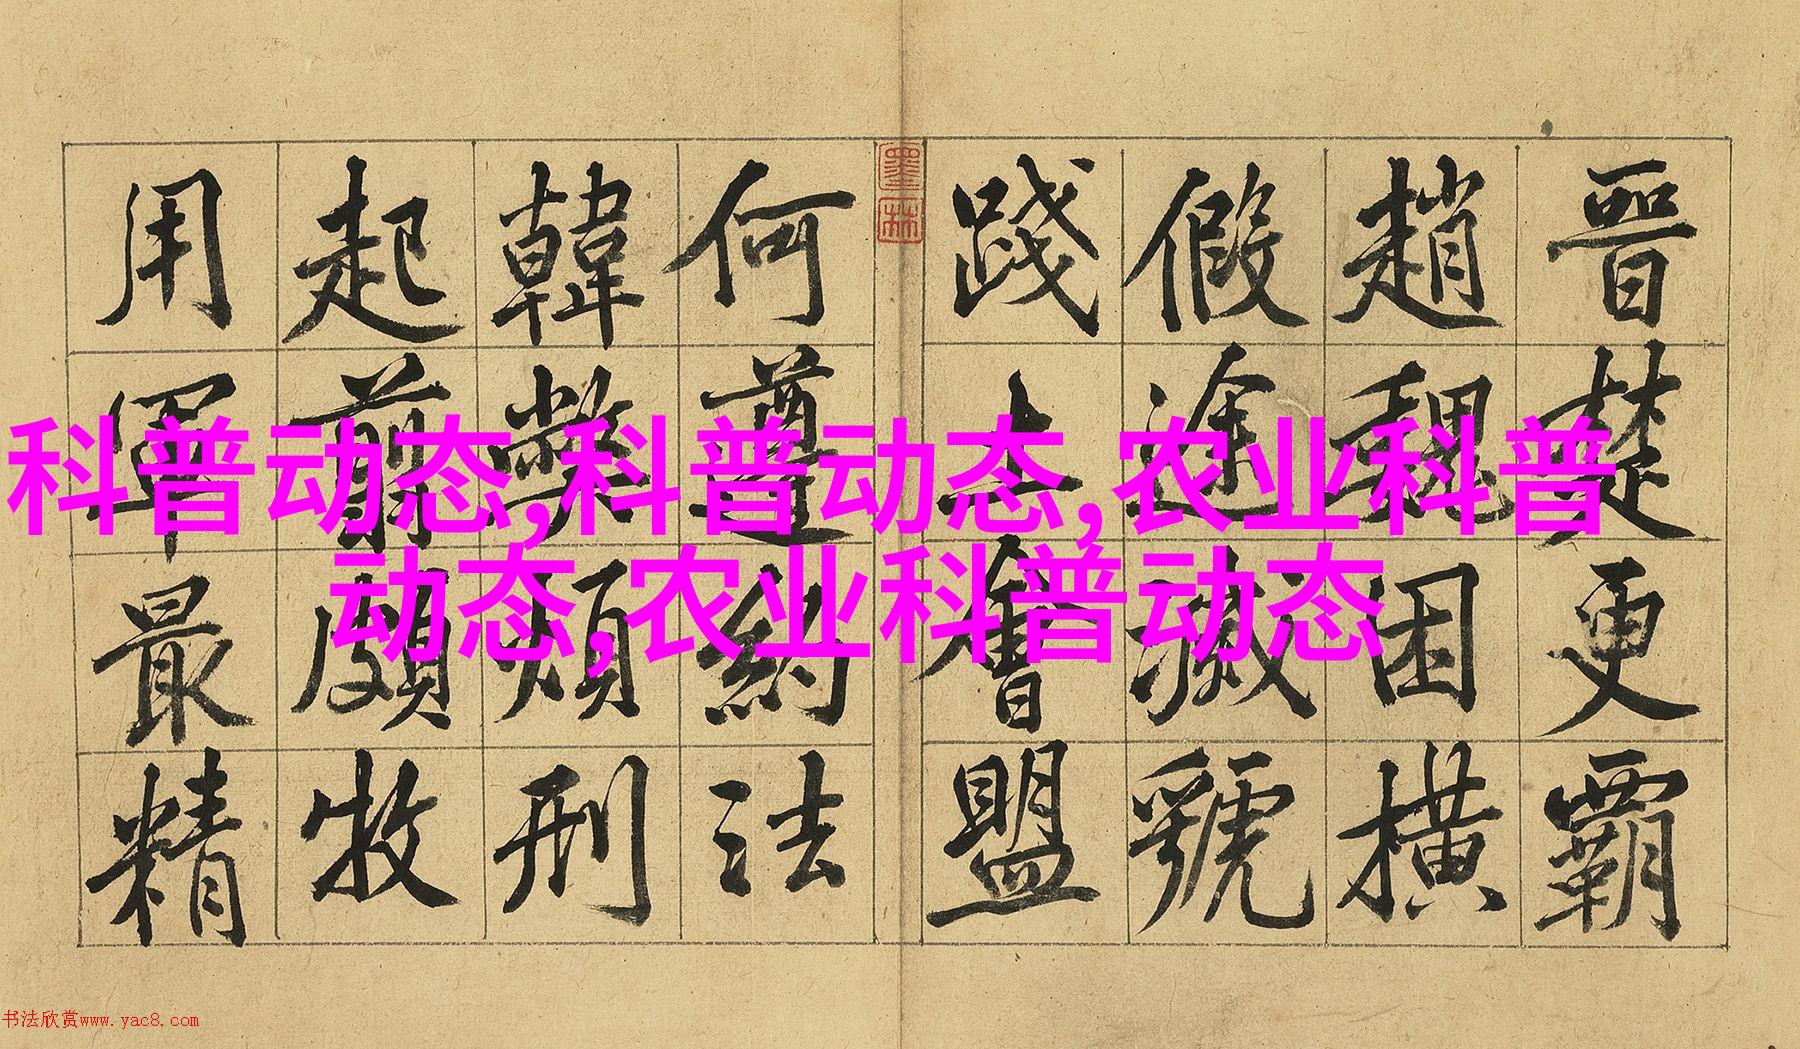 晉楚更霸
趙魏困橫
假途滅虢
踐土會盟
墨林
何遵約法
韓弊煩刑
起翦頗牧
用軍最精
科普动态,科普动态,农业科普
动态,农业科普动态
书法欣赏www.yac8.com